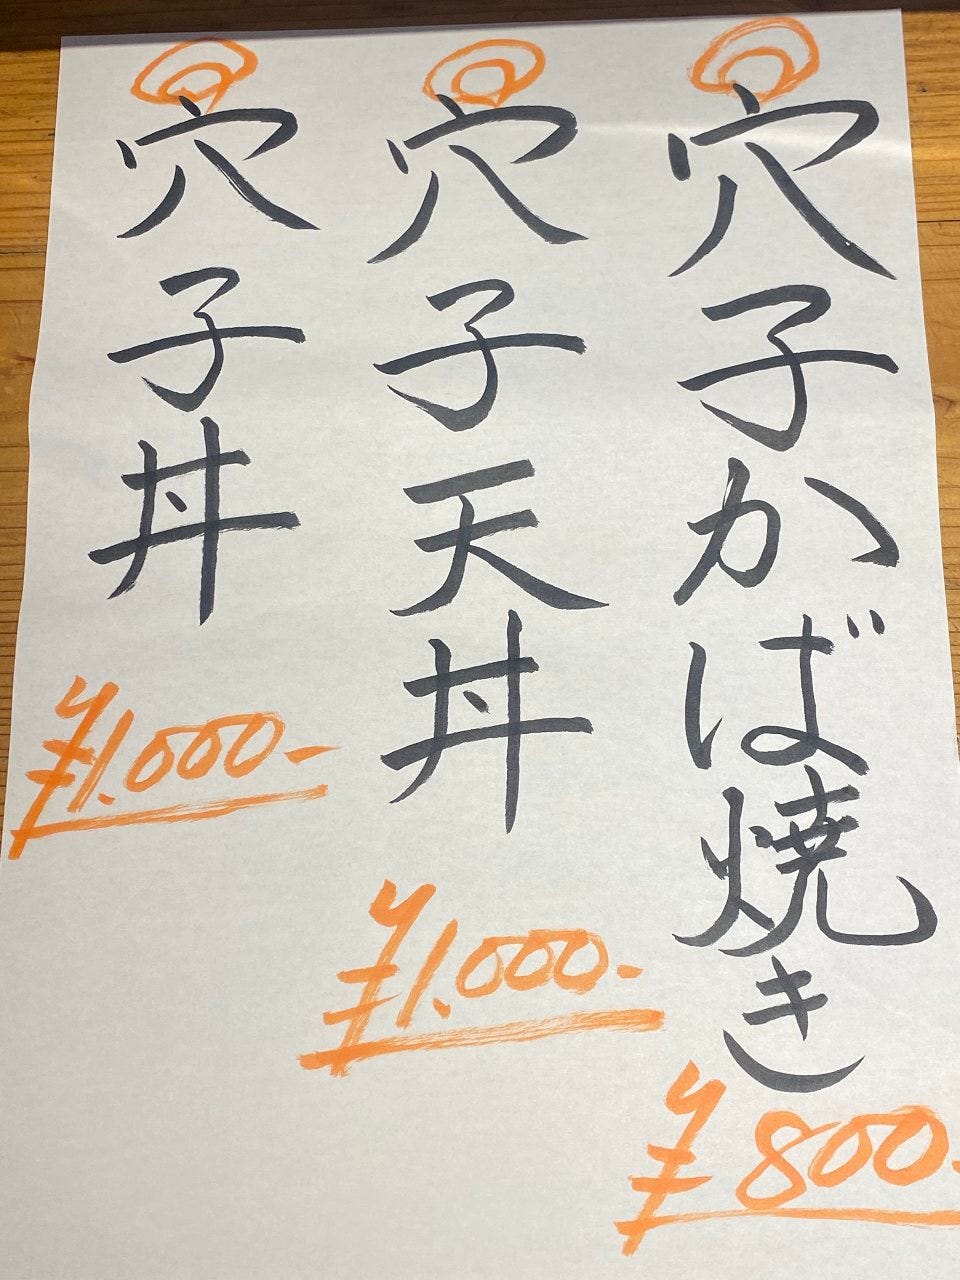 穴子かば焼き
¥800-
穴子天丼
¥1.000-
穴子丼
¥1.000-